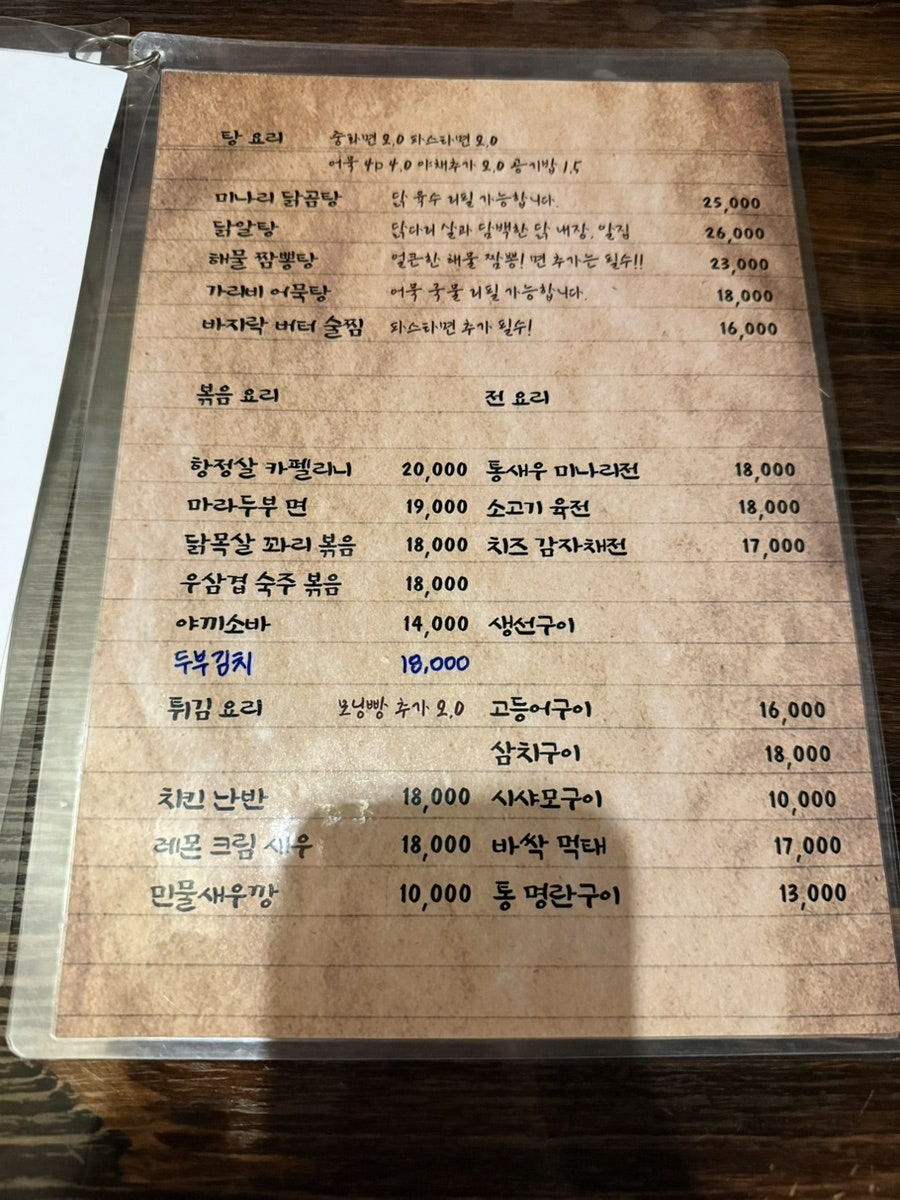 탕 요리 중화면 2.0 파스타면 2.0
어묵 4p 4.0 야채추가 2.0 공기밥 1.5
미나리 닭곰탕 닭 육수 리필 가능합니다. 25,000
닭알탕 닭다리 살과 담백한 닭 내장, 알집 26,000
해물 짬뽕탕 얼큰한 해물 짬뽕! 면 추가는 필수!! 23,000
가리비 어묵탕 어묵 국물 리필 가능합니다. 18,000
바지락 버터 술찜 파스타면 추가 필수! 16,000
볶음 요리 전 요리
항정살 카펠리니 20,000 통새우 미나리전 18,000
마라두부 면 19,000 소고기 육전 18,000
닭목살 꽈리 볶음 18,000 치즈 감자채전 17,000
우삼겹 숙주 볶음 18,000
야끼소바 14,000 생선구이
두부김치 18,000
튀김 요리 모닝빵 추가 2.0 고등어구이 16,000
삼치구이 18,000
치킨 난반 18,000 시샤모구이 10,000
레몬 크림 새우 18,000 바싹 먹태 17,000
민물새우깡 10,000 통 명란구이 13,000